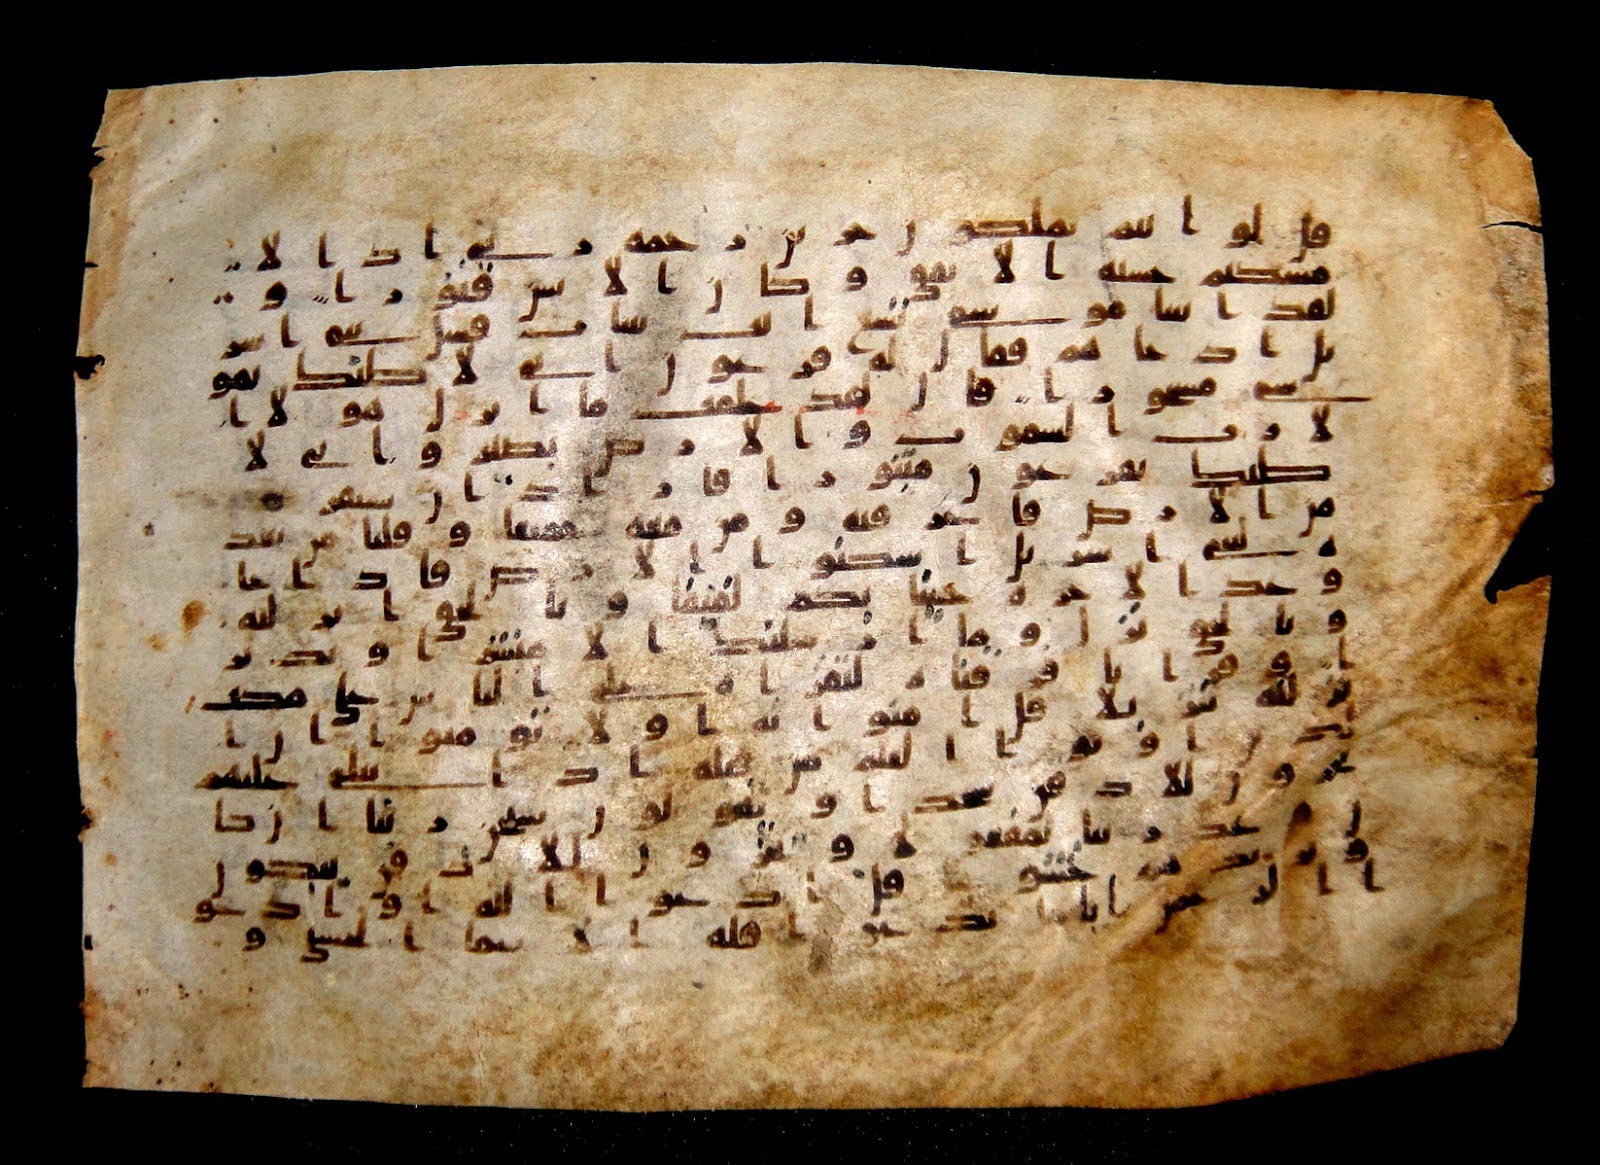 قل لو انتم تملكون خزين رحمه ربي اذا لا
مسكتم خشيه الانفق وكان الانسن قتورا و
لقد اتينا موسى تسع ايت بينت فسل بني اس
ريل اذ جاهم فقال له فرعون اني لاظنك يمو
سى مسحورا قال لقد علمت ما انزل هولا ا
لا رب السموت والارض بصير واني لا
ظنك يفرعون مثبورا فاراد ان يستفزهم
من الارض فاغرقنه ومن معه جميعا وقلنا من بعد
ه لبني اسريل اسكنوا الارض فاذا جا
وعد الاخره جينا بكم لفيفا وبالحق انزلنه
وبالحق نزل وما ارسلنك الا مبشرا ونذير
ا وقرانا فرقناه لتقراه على الناس على مكث
ونزلنه تنزيلا قل امنوا به او لا تومنوا ان ا
لذين اوتوا العلم من قبله اذا يتلى عليهم
يخرون للاذقن سجدا ويقولون سبحن ربنا ان كا
ن وعد ربنا لمفعولا ويخرون للاذقن يبكون
ويزيدهم خشوعا قل ادعوا الله او ادعو
ا الرحمن ايا ما تدعوا فله الاسما الحسنى و